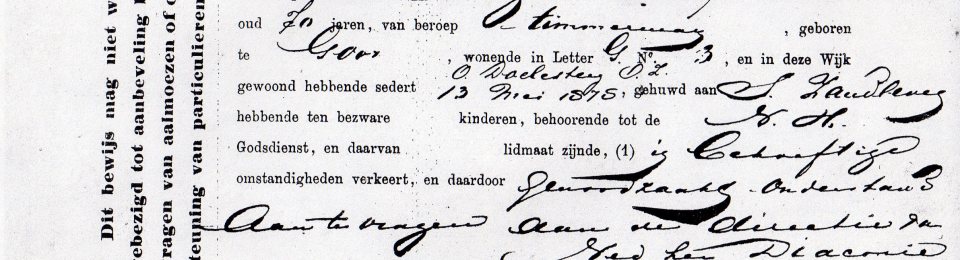 oud 70 jaren, van beroep timmerman, geboren
te Goor, wonende in Letter G. No. 3, en in deze Wijk
O. Doelesteeg O. Z.
gewoond hebbende sedert 13 Mei 1878, gehuwd aan S. Zandleven
hebbende ten bezware kinderen, behoorende tot de N. H.
Godsdienst, en daarvan lidmaat zijnde, (1) in Behoeftige
omstandigheden verkeert, en daardoor genoodzaakt onderstand
Aan te vragen aan de directie
Ned Her Diaconie
Dit bewijs mag niet
ebezigd tot aanbeveling
ragen van aalmoezen of
teuning van particulieren